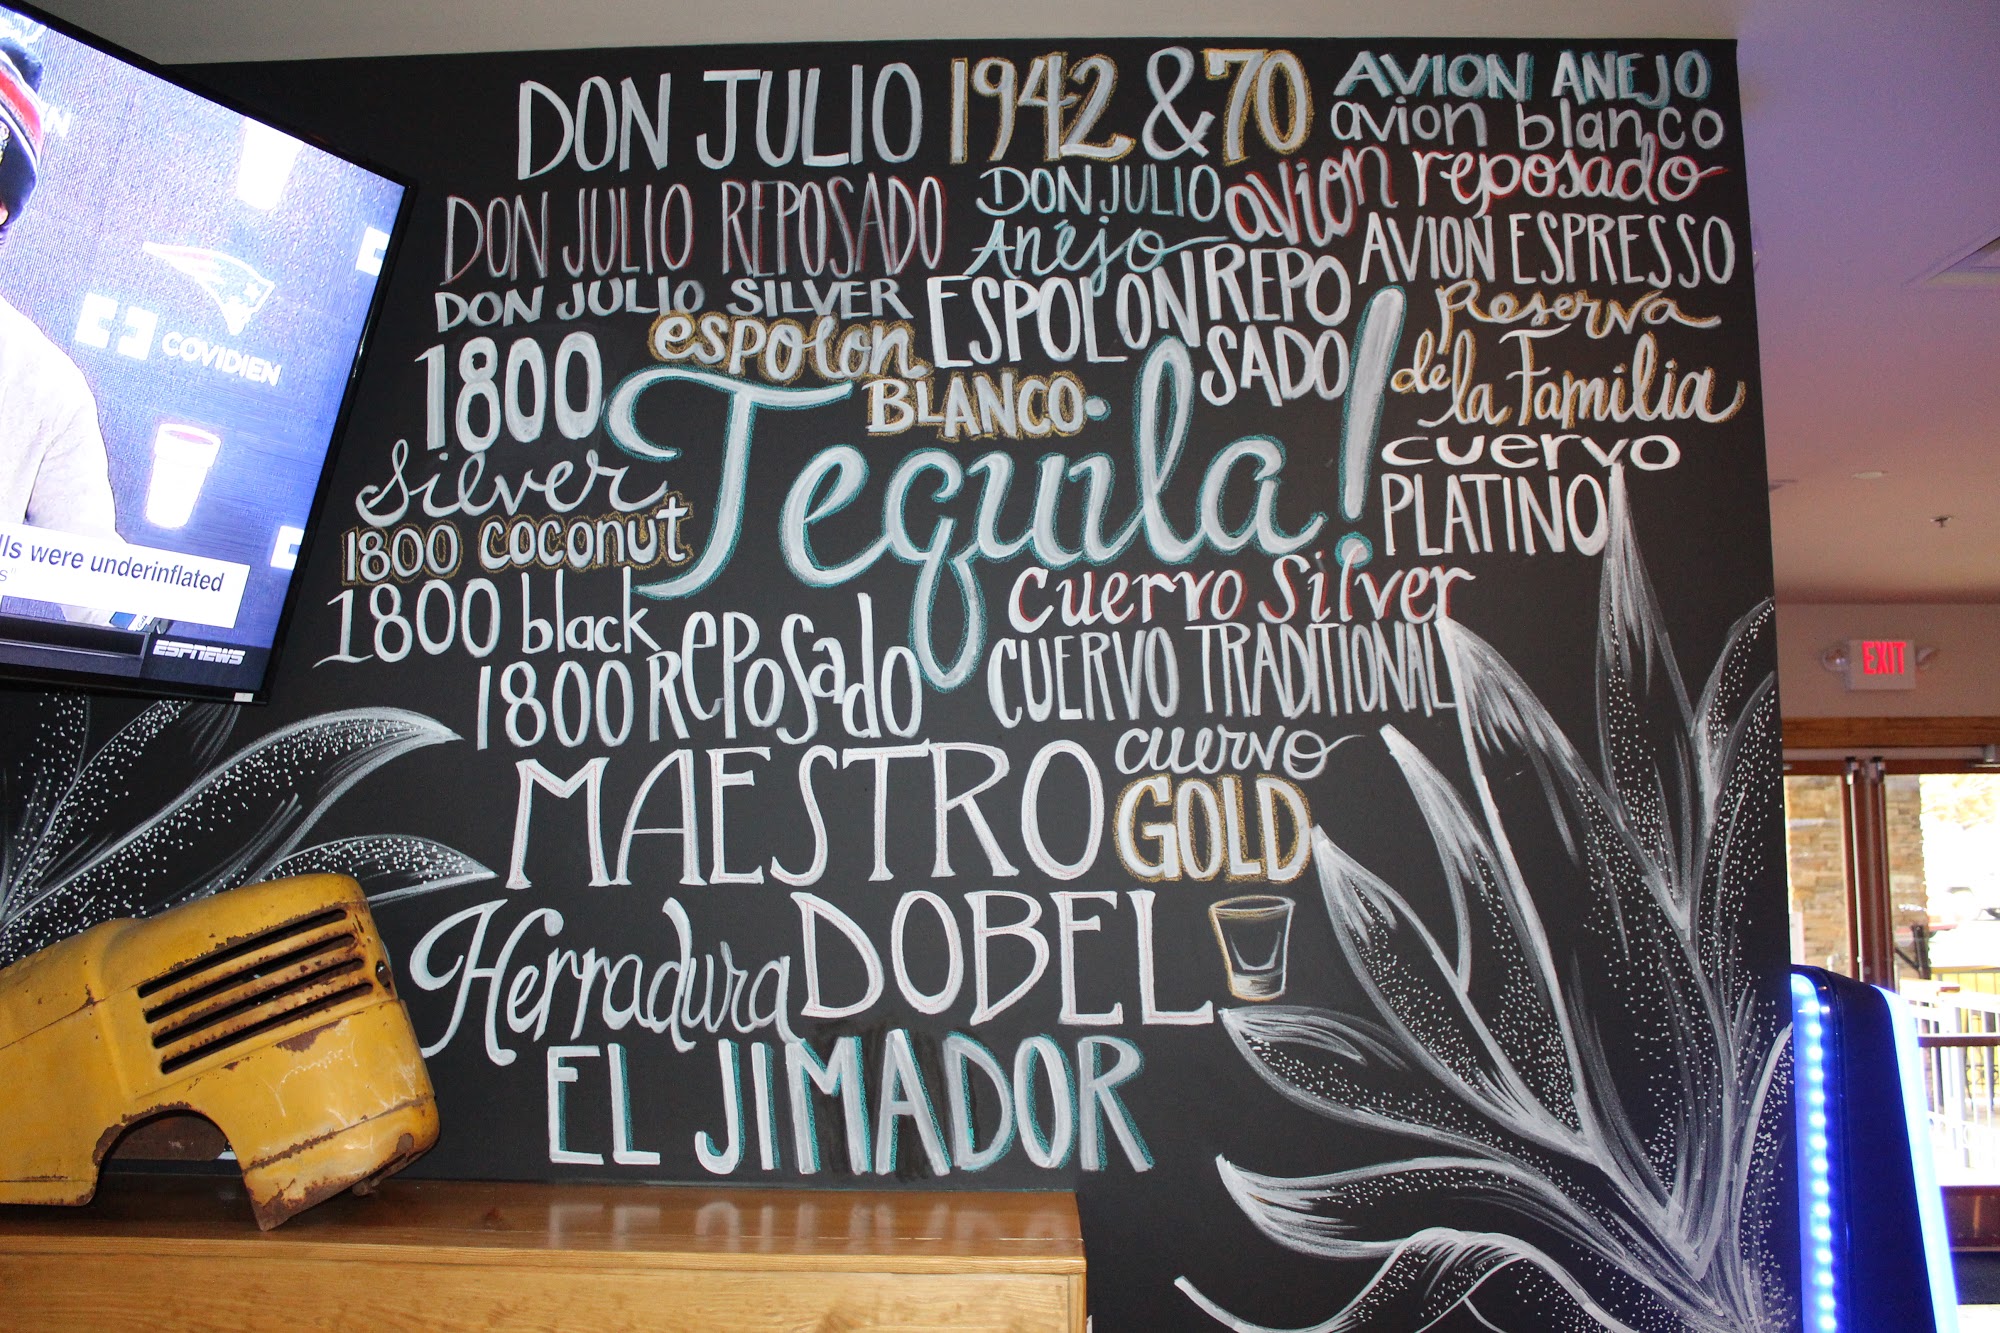 DON JULIO 1942 & 70
AVION ANEJO
avion blanco
avion reposado
AVION ESPRESSO
DON JULIO REPOSADO
DON JULIO
Añejo
DON JULIO SILVER
espolon
BLANCO
ESPOLON REPO
SADO
Reserva
de la Familia
1800
Silver
Tequila!
cuervo
PLATINO
1800 coconut
1800 black
1800 Reposado
Cuervo Silver
CUERVO TRADITIONAL
cuervo
GOLD
MAESTRO
DOBEL
Herradura
EL JIMADOR
COVIDIEN
lls were underinflated
s"
ESPNEWS
EXIT